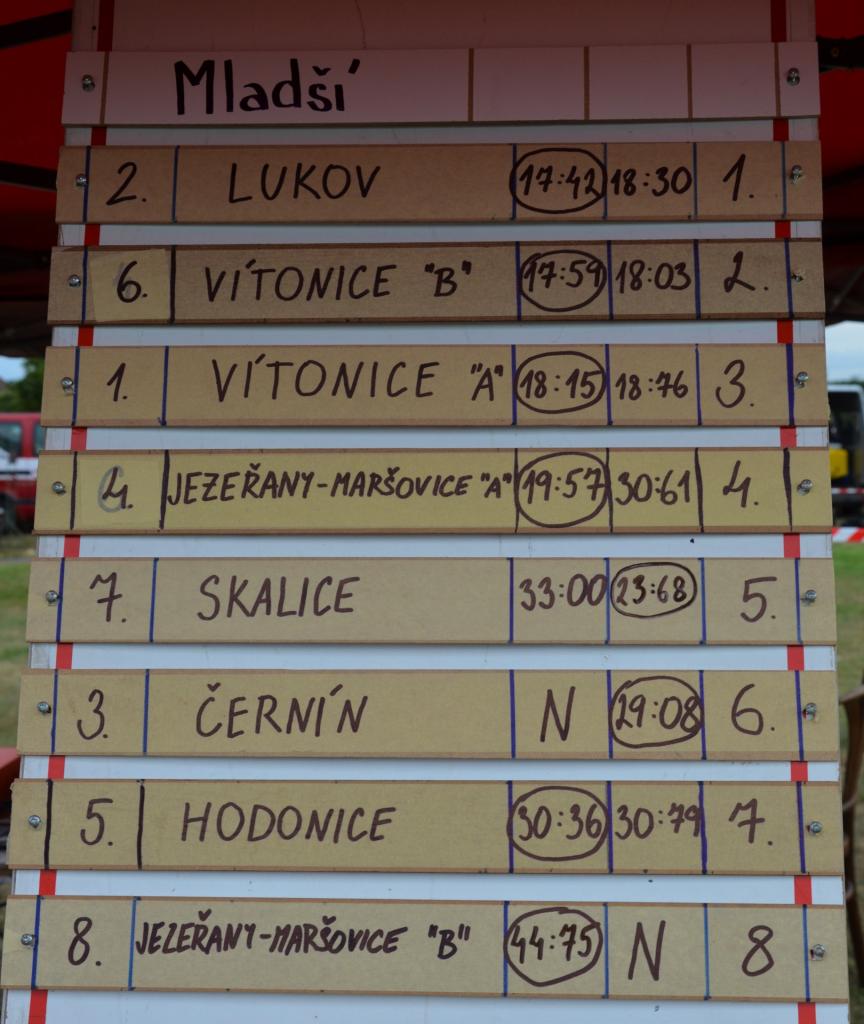 Mladší
2. LUKOV 17:42 18:30 1.
6. VÍTONICE "B" 17:59 18:03 2.
1. VÍTONICE "A" 18:15 18:76 3.
4. JEZEŘANY-MARŠOVICE "A" 19:57 30:61 4.
7. SKALICE 33:00 23:68 5.
3. ČERNÍN N 29:08 6.
5. HODONICE 30:36 30:79 7.
8. JEZEŘANY-MARŠOVICE "B" 44:75 N 8